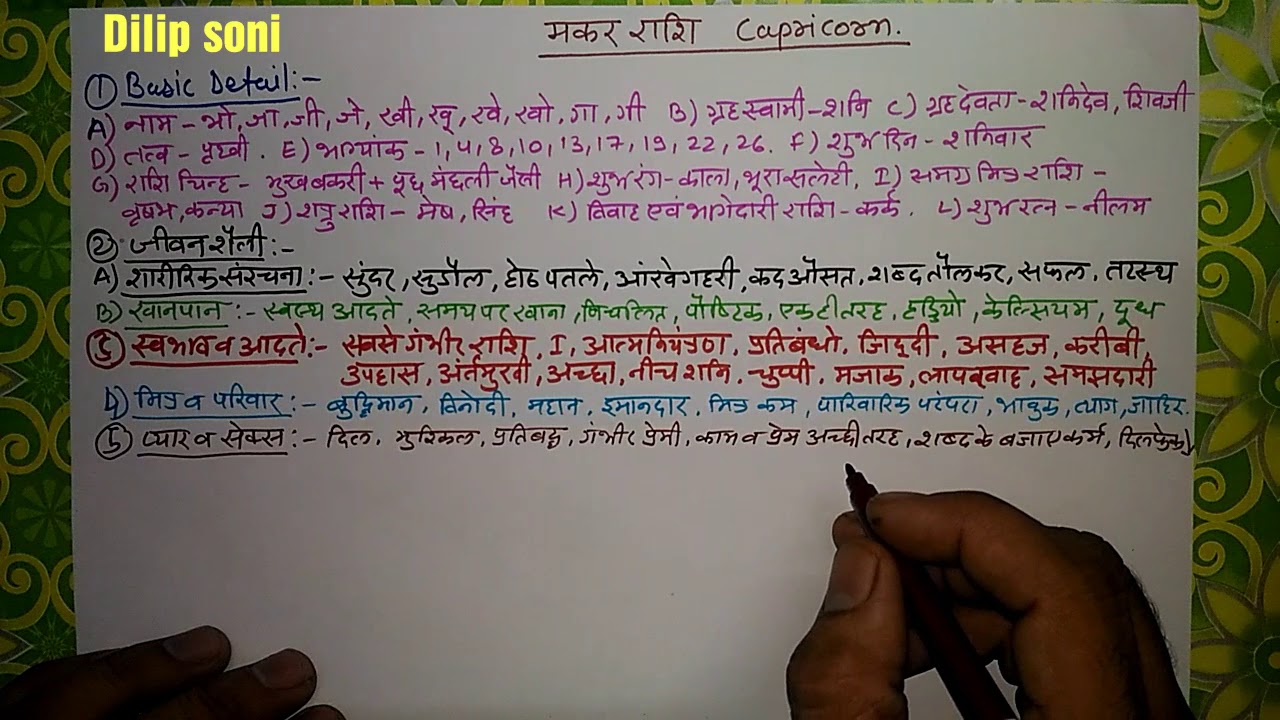 Dilip soni
मकर राशि Capricorn.
① Basic Detail:-
A) नाम - भो, जा, जी, जे, खी, खू, खे, खो, गा, गी B) ग्रह स्वामी - शनि C) ग्रह देवता - शनिदेव, शिवजी
D) तत्व - पृथ्वी. E) भाग्यांक - 1, 4, 8, 10, 13, 17, 19, 22, 26. F) शुभ दिन - शनिवार
G) राशि चिन्ह - मुख बकरी + पूछ मछली जैसी H) शुभ रंग - काला, भूरा सलेटी, I) समग्र मित्र राशि -
वृषभ, कन्या J) शत्रु राशि - मेष, सिंह K) विवाह एवं भागेदारी राशि - कर्क. L) शुभ रत्न - नीलम
② जीवन शैली:-
A) शारीरिक संरचना:- सुंदर, सुडौल, होठ पतले, आंखे गहरी, कद औसत, शब्द तौलकर, सफल, तटस्थ
B) खानपान:- स्वस्थ आदते, समय पर खाना, पौष्टिक, एक ही तरह, हड्डियो, केल्सियम, दूध
स्वभाव व आदते:- सबसे गंभीर राशि, I, आत्मनियंत्रण, प्रतिबंधो, जिद्दी, असहज, करीबी,
उपहास, अंर्तमुखी, अच्छा, नीच शनि. चुप्पी. मजाक, लापरवाह, समझदारी
मित्र व परिवार:- बुद्धिमान, विनोदी, महान, इमानदार, मित्र कम, पारिवारिक परंपरा, भावुक, त्याग, जाहिर.
⑤ प्यार व सेक्स:- दिल, मुश्किल, प्रतिबद्ध, गंभीर प्रेमी, काम व प्रेम अच्छी तरह, शब्द के बजाए कर्म, दिलफेक